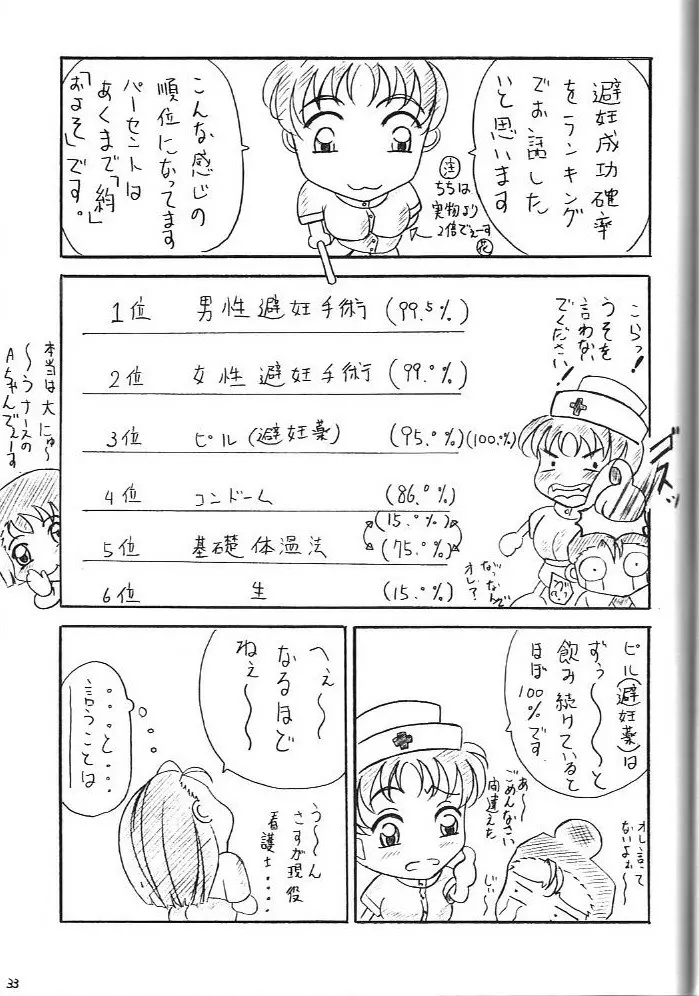 避妊成功確率
をランキング
でお話した
いと思います
注
ちちは
実物より
2倍でぇーす
花
こんな感じの
順位になってます
パーセントは
あくまで「約」
「およそ」です。
1位 男性避妊手術 (99.5%)
2位 女性避妊手術 (99.0%)
3位 ピル(避妊薬) (95.0%)(100%)
4位 コンドーム (86.0%)
(15.0%)
5位 基礎体温法 (75.0%)
6位 生 (15.0%)
こらっ!
うそを
言わない
でください!
なっなんで
オレ?
本当は大にゅ〜
〜うナースの
Aちゃんでぇーす
ピル(避妊薬)は
ずぅ〜〜〜っと
飲み続けていると
ほぼ100%です
あ〜
ごめんなさい
間違えた
じぃ〜
オレ言って
ないよぉ〜
へぇ〜〜
なるほど
ねぇ〜〜
う〜〜ん
さすが現役
看護士....
...と....
言うことは
33